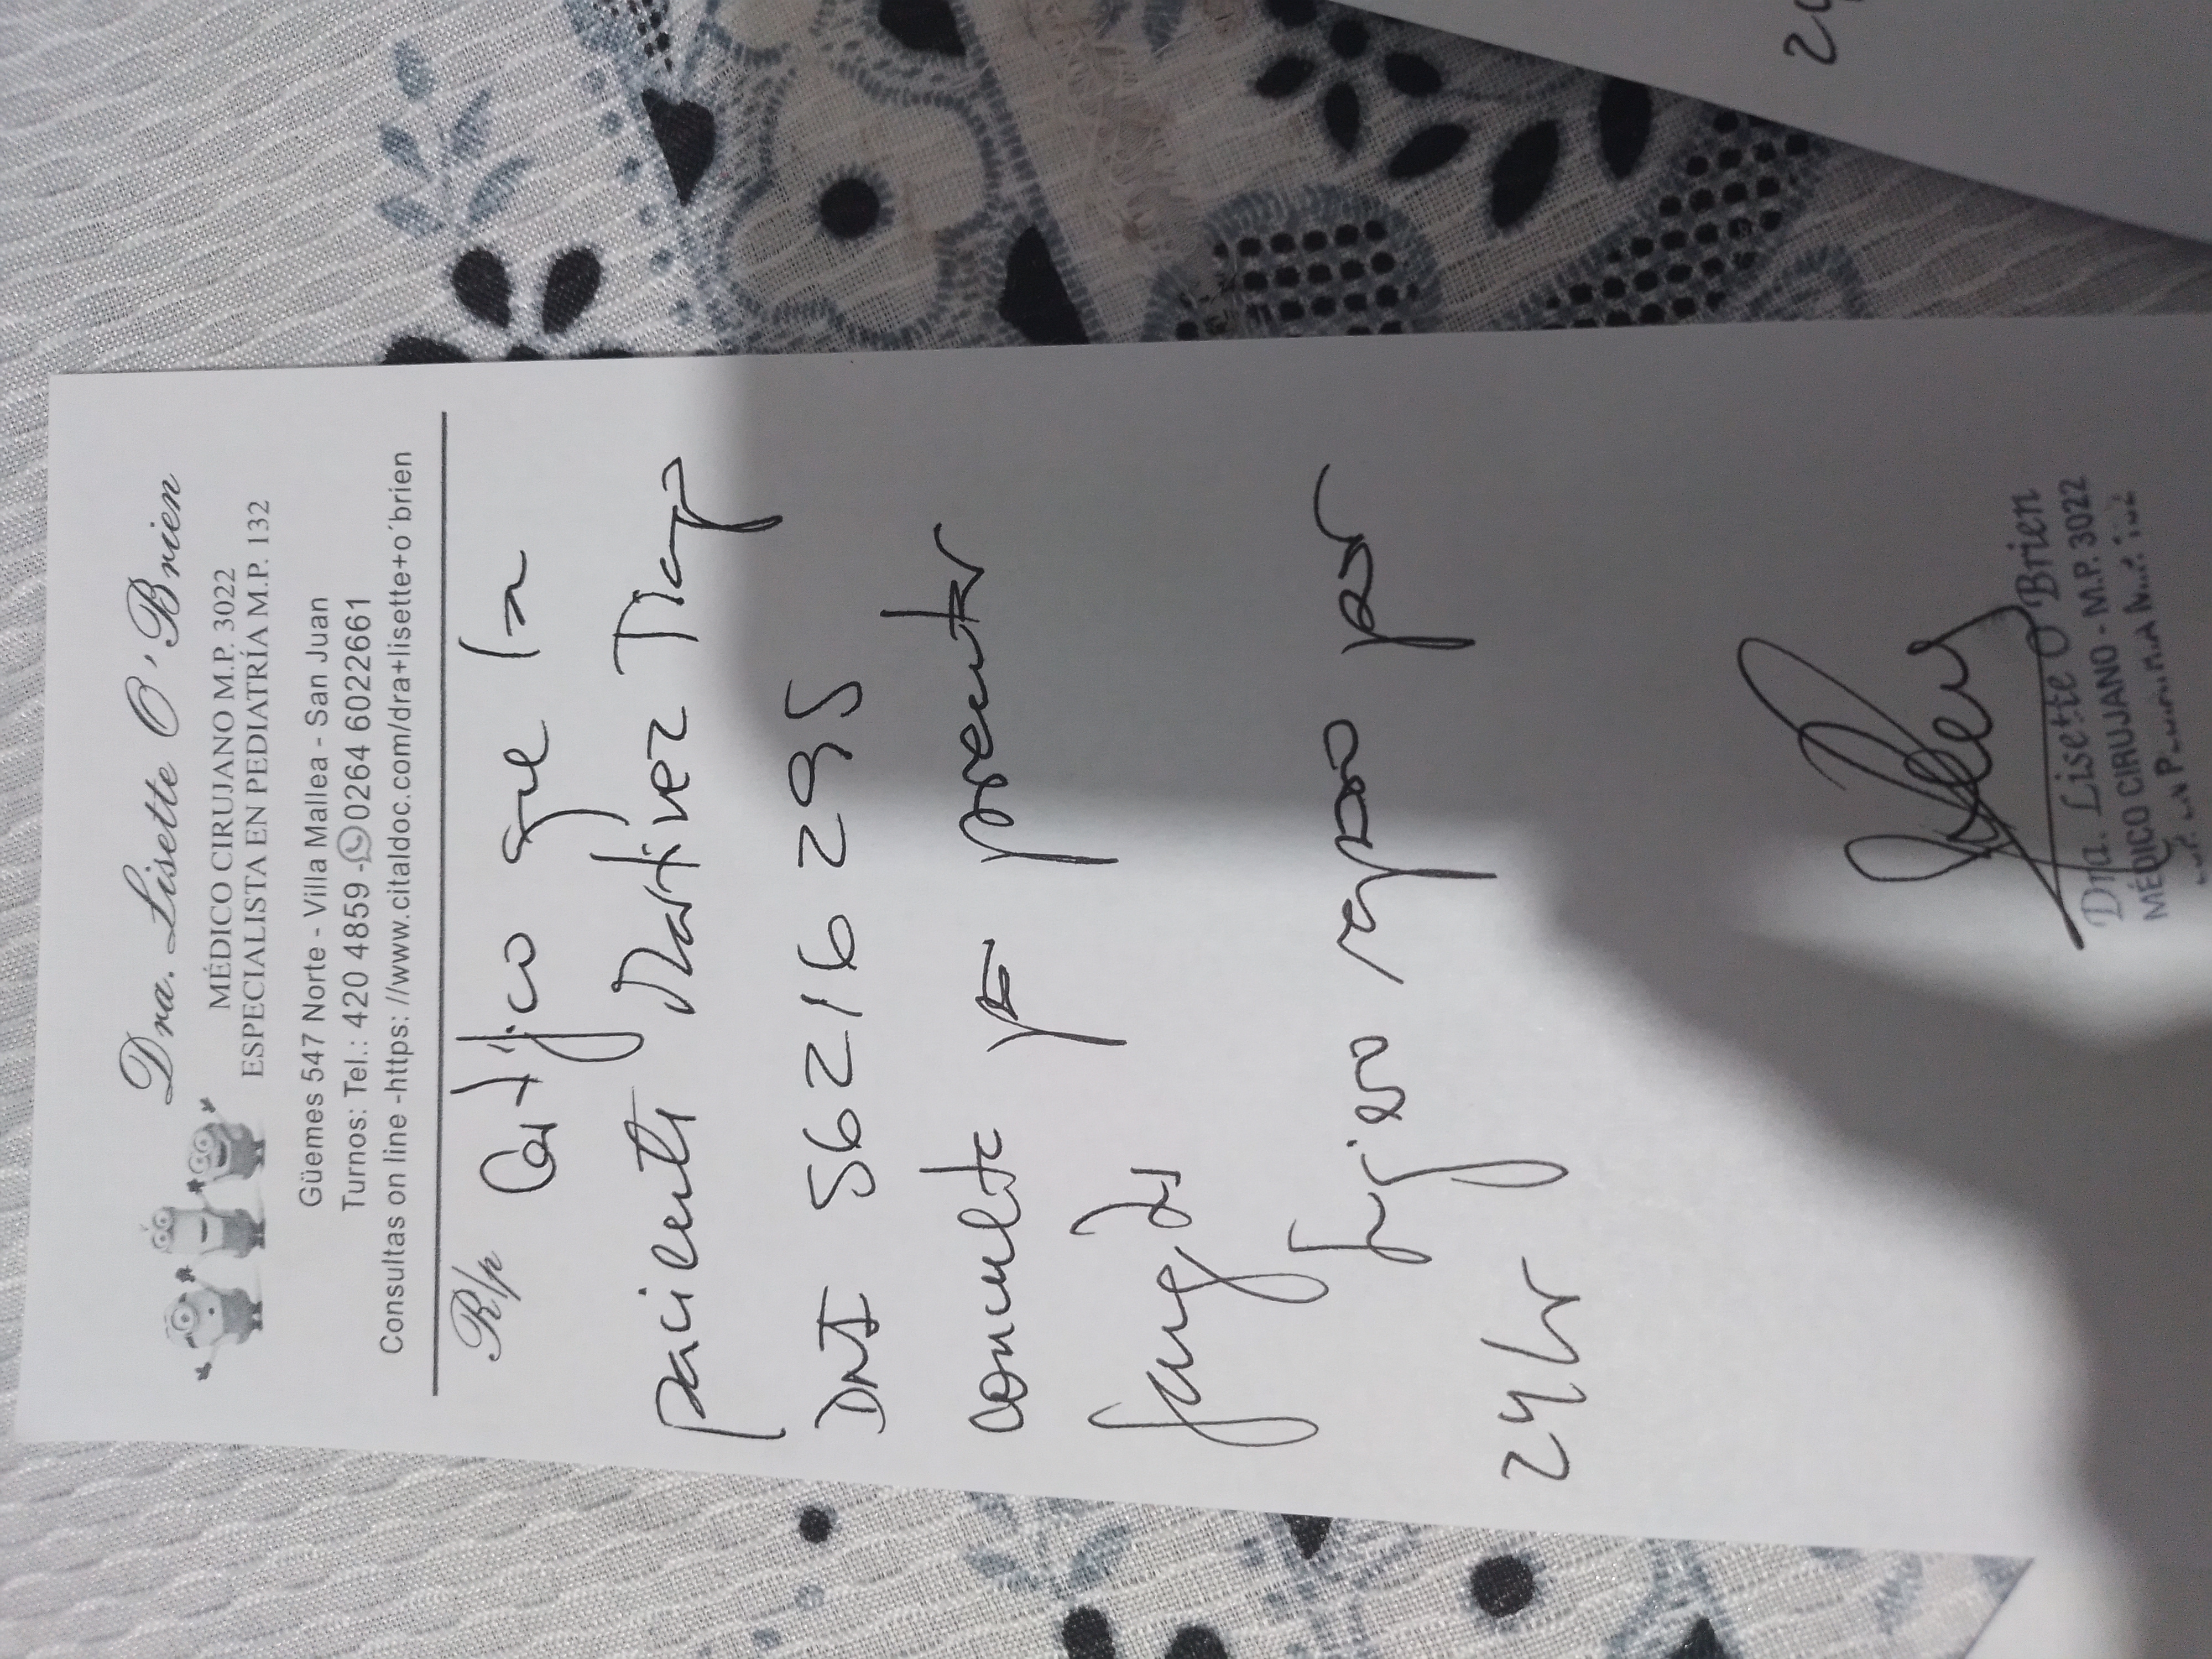 Dra. Lisette O'Brien
MÉDICO CIRUJANO M.P. 3022
ESPECIALISTA EN PEDIATRÍA M.P. 132
Güemes 547 Norte - Villa Mallea - San Juan
Turnos: Tel.: 420 4859 - 0264 6022661
Consultas on line -https: //www.citaldoc.com/dra+lisette+o´brien
R/p
Certifico que la
paciente Martinez Tiago
DNI 56216295
consulte por presentar
sugiero reposo por
24 hr
Dra. Lisette O'Brien
MÉDICO CIRUJANO - M.P. 3022
24